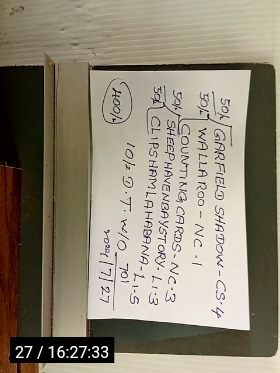 50/- GARFIELD SHADOW - CS. 4
50/- WALLAROO - NC. 1
50/- COUNTING CARDS - NC. 3
SHEEPHAVENBAYSTORY. L1. 3
50/- CLIPSHAMLAHABANA - L1. 5
400/-
10/= D. T. W/O 701
27 / 16:27:33